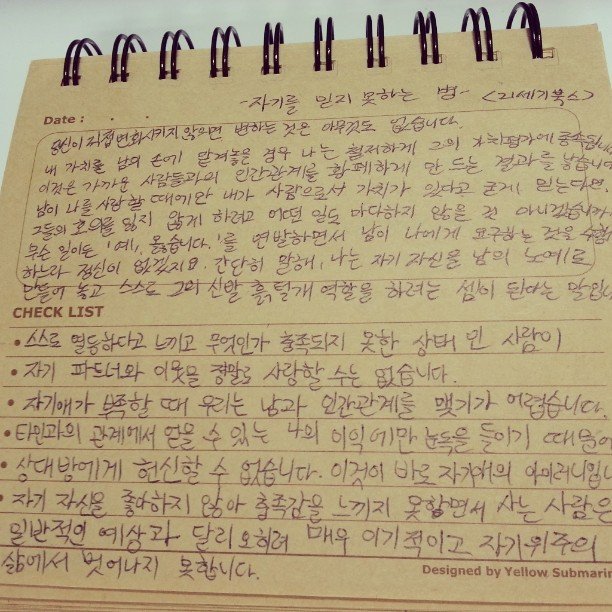 -자기를 믿지 못하는 병- <21세기북스>
Date : . .
당신이 직접 변화시키지 않으면 변하는 것은 아무것도 없습니다.
내 가치를 남의 손에 맡겨놓을 경우 나는 철저하게 그의 가치평가에 종속됩니
이것은 가까운 사람들과의 인간관계를 황폐하게 만드는 결과를 낳습니다
남이 나를 사랑할 때에만 내가 사람으로서 가치가 있다고 굳게 믿는다면
그들의 호의를 잃지 않게 하려고 어떤 일도 마다하지 않을 것 아니겠습니까
무슨 일이든 '예, 옳습니다.'를 연발하면서 남이 나에게 요구하는 것을
하느라 정신이 없겠지요. 간단히 말해, 나는 자기 자신을 남의 노예로
만들어 놓고 스스로 그의 신발 흙털개 역할을 하려는 셈이 된다는 말입니
CHECK LIST
• 스스로 열등하다고 느끼고 무엇인가 충족되지 못한 상태인 사람이
• 자기 파트너와 이웃을 정말로 사랑할 수는 없습니다.
• 자기애가 부족할 때 우리는 남과 인간관계를 맺기가 어렵습니다.
• 타인과의 관계에서 얻을 수 있는 나의 이익에만 눈독을 들이기 때문에
• 상대방에게 헌신할 수 없습니다. 이것이 바로 자기애의 아이러니입니
• 자기 자신을 좋아하지 않아 충족감을 느끼지 못하면서 사는 사람은
일반적인 예상과 달리 오히려 매우 이기적이고 자기위주의
삶에서 벗어나지 못합니다.
Designed by Yellow Submarin